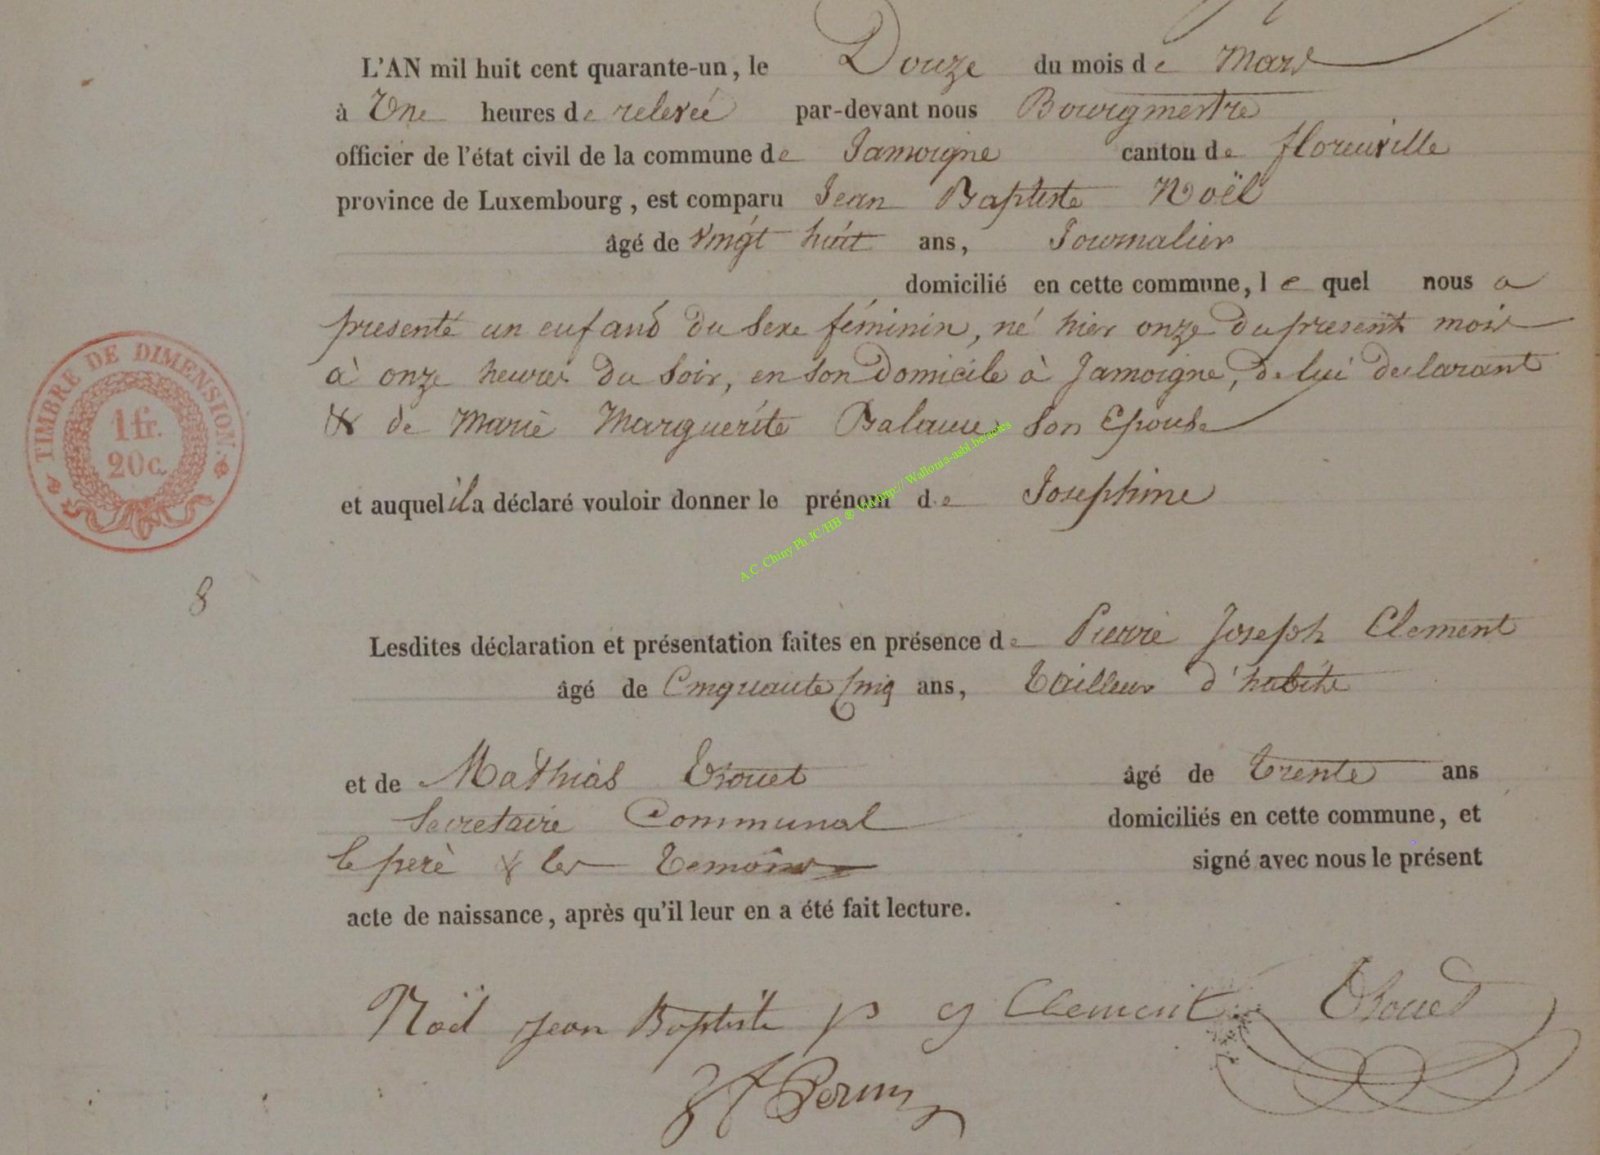 L'AN mil huit cent quarante-un, le Douze du mois de Mars
à Une heures de relevée par-devant nous Bourgmestre
officier de l'état civil de la commune de Jamoigne canton de florenville
province de Luxembourg, est comparu Jean Baptiste Noël
âgé de vingt huit ans, Journalier
domicilié en cette commune, le quel nous a
presenté un enfant du sexe féminin, né hier onze du present mois
à onze heures du soir, en son Domicile à Jamoigne, de lui declarant
& de Marie Marguerite son Epouse
et auquel il a déclaré vouloir donner le prénom de Josephine
TIMBRE DE DIMENSION.
1 fr.
20 c.
8
Lesdites déclaration et présentation faites en présence de Pierre Joseph Clement
âgé de Cinquante Cinq ans, Tailleur d'habits
et de Mathias âgé de trente ans
Secretaire Communal domiciliés en cette commune, et
le perè & les temoins signé avec nous le présent
acte de naissance, après qu'il leur en a été fait lecture.
Noël jean Baptiste p j Clement
A.C. Chiny Ph JC/HB